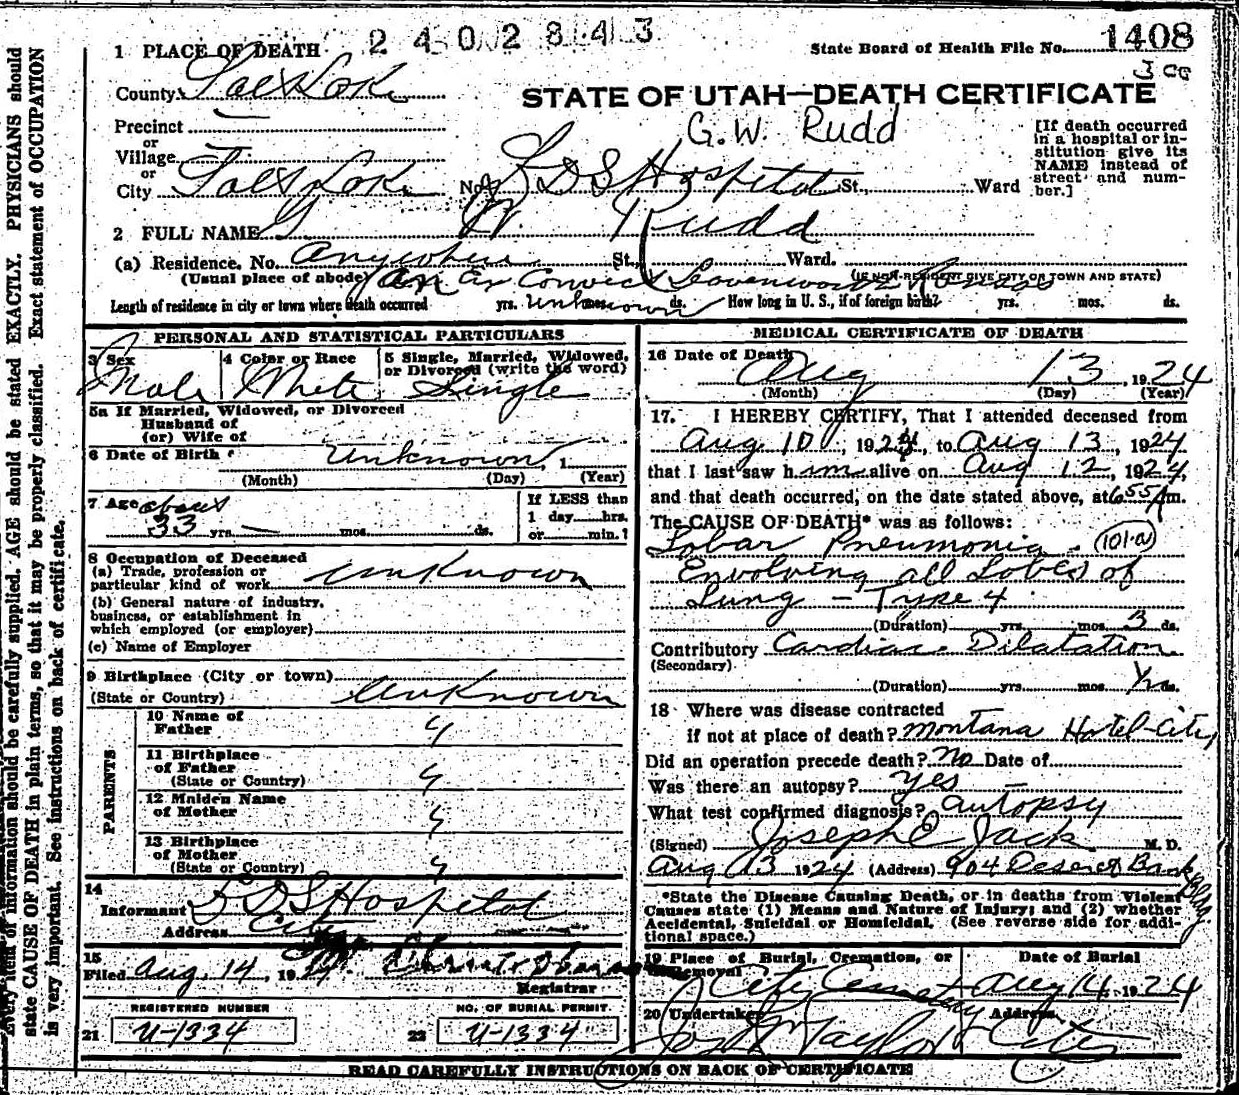 2402843
State Board of Health File No. 1408
3 CG
1 PLACE OF DEATH
County Salt Lake
STATE OF UTAH—DEATH CERTIFICATE
G.W. Rudd
Precinct
or
Village
or
City Salt Lake No. L D S Hospital St., Ward
[If death occurred
in a hospital or in-
stitution give its
NAME instead of
street and num-
ber.]
2 FULL NAME G W. Rudd
(a) Residence. No. anywhere St. Ward.
(Usual place of abode) an Ex Convict Leavenworth Kansas (IF NON-RESIDENT GIVE CITY OR TOWN AND STATE)
Length of residence in city or town where death occurred yrs. unknown mos. ds. How long in U. S., if of foreign birth? yrs. mos. ds.
PERSONAL AND STATISTICAL PARTICULARS
3 Sex Male
4 Color or Race White
5 Single, Married, Widowed,
or Divorced (write the word)
Single
5a If Married, Widowed, or Divorced
Husband of
(or) Wife of
6 Date of Birth unknown, 1
(Month) (Day) (Year)
7 Age about
33 yrs. — mos. ds.
If LESS than
1 day hrs.
or min.?
8 Occupation of Deceased
(a) Trade, profession or
particular kind of work unknown
(b) General nature of industry,
business, or establishment in
which employed (or employer)
(c) Name of Employer
9 Birthplace (City or town)
(State or Country) unknown
PARENTS
10 Name of
Father "
11 Birthplace
of Father "
(State or Country)
12 Maiden Name
of Mother "
13 Birthplace
of Mother "
(State or Country)
14
Informant L D S Hospital
Address City
15
Filed Aug. 14, 1924
Registrar
REGISTERED NUMBER
21 U-1334
NO. OF BURIAL PERMIT
22 U-1334
MEDICAL CERTIFICATE OF DEATH
16 Date of Death
Aug 13, 1924
(Month) (Day) (Year)
17. I HEREBY CERTIFY, That I attended deceased from
Aug 10, 1924, to Aug 13, 1924
that I last saw him alive on Aug 12, 1924,
and that death occurred, on the date stated above, at 6 55 A m.
The CAUSE OF DEATH* was as follows:
Lobar Pneumonia. 101-a
Envolving all Lobes of
Lung — Type 4
(Duration) yrs. mos. 3 ds.
Contributory Cardiac Dilatation
(Secondary)
(Duration) yrs. mos. ds.
18 Where was disease contracted
if not at place of death? Montana Hotel-City
Did an operation precede death? No Date of
Was there an autopsy? Yes
What test confirmed diagnosis? autopsy
(Signed) Joseph E Jack M. D.
Aug 13 1924 (Address) 904 Deseret Bank Bldg
*State the Disease Causing Death, or in deaths from Violent
Causes state (1) Means and Nature of Injury; and (2) whether
Accidental, Suicidal or Homicidal. (See reverse side for addi-
tional space.)
19 Place of Burial, Cremation, or
Removal
City Cemetery
Date of Burial
Aug 14, 1924
20 Undertaker
Taylor
Address
City
READ CAREFULLY INSTRUCTIONS ON BACK OF CERTIFICATE
Every item of information should be carefully supplied. AGE should be stated EXACTLY. PHYSICIANS should
state CAUSE OF DEATH in plain terms, so that it may be properly classified. Exact statement of OCCUPATION
is very important. See instructions on back of certificate.